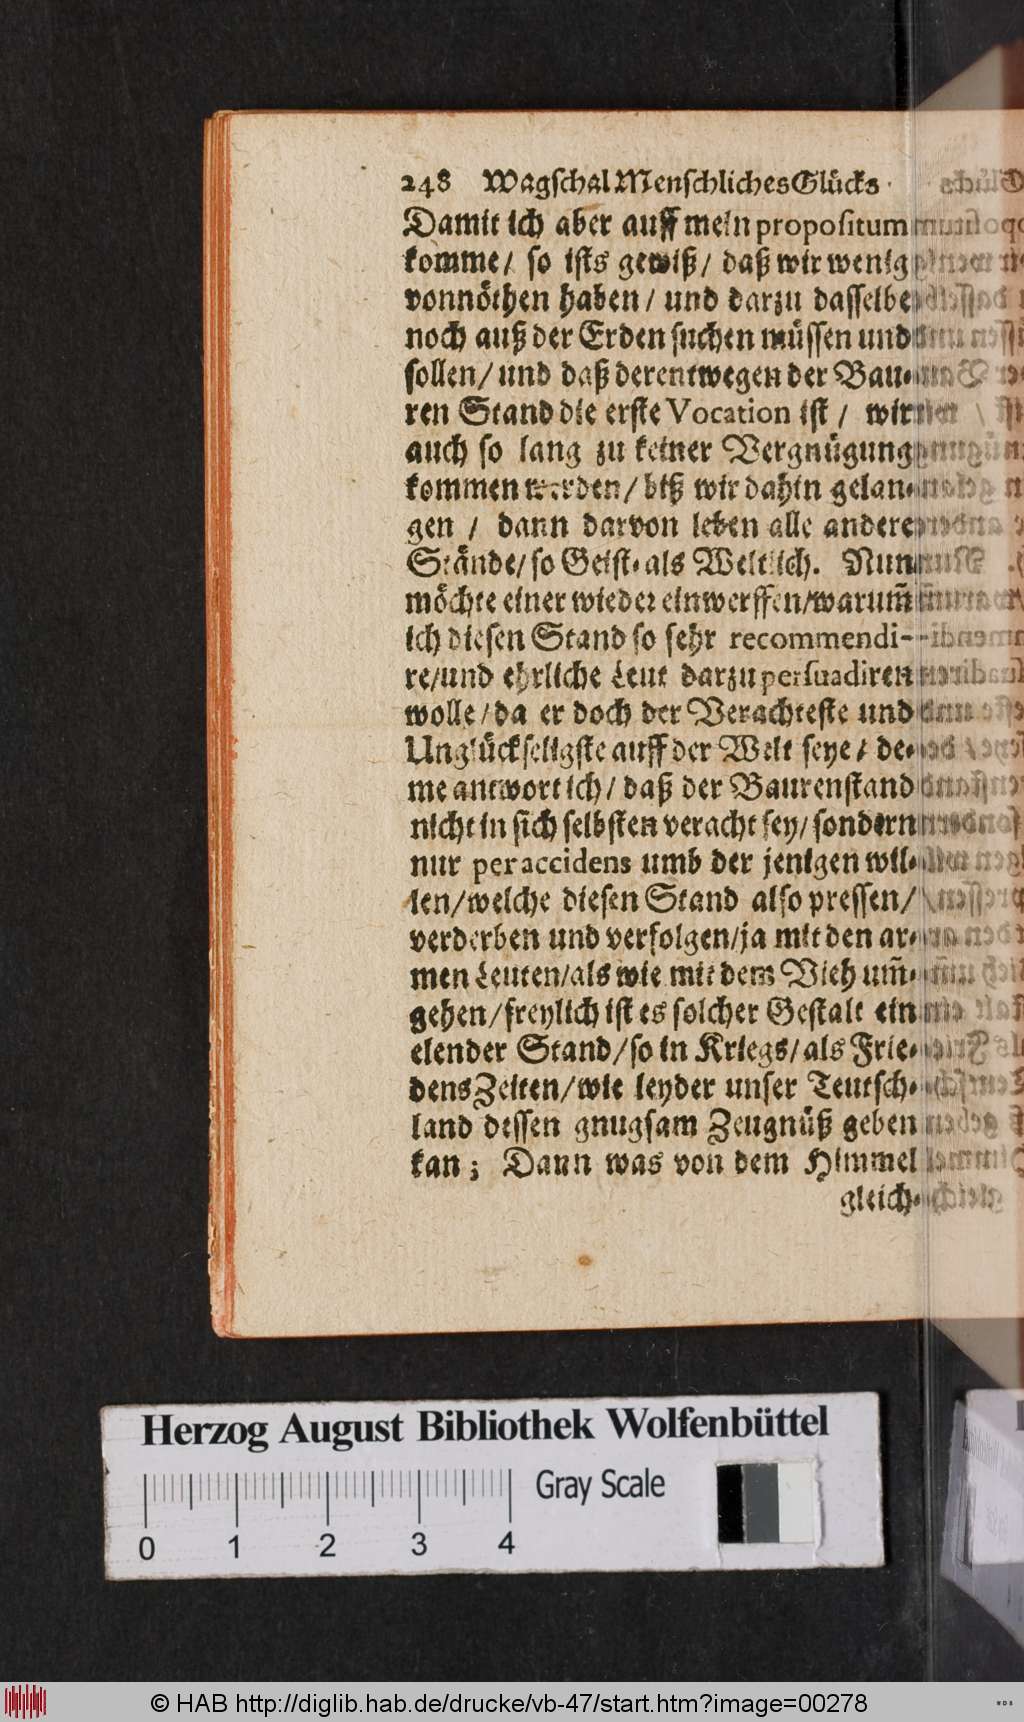 248 Wagschal Menschliches Glücks
Damit ich aber auff mein propositum
komme/ so ists gewiß/ daß wir wenig
vonnöthen haben/ und darzu dasselbe
noch auß der Erden suchen müssen und
sollen/ und daß derentwegen der Bau-
ren Stand die erste Vocation ist/ wir
auch so lang zu keiner Vergnügung
kommen werden/ biß wir dahin gelan-
gen/ dann darvon leben alle andere
Stände/ so Geist- als Weltlich. Nun
möchte einer wieder einwerffen/warum̃
ich diesen Stand so sehr recommendi-
re/und ehrliche Leut darzu persuadiren
wolle/da er doch der Verachteste und
Unglückseligste auff der Welt seye/ de-
me antwort ich/ daß der Baurenstand
nicht in sich selbsten veracht sey/ sondern
nur per accidens umb der jenigen wil-
len/welche diesen Stand also pressen/
verderben und verfolgen/ja mit den ar-
men Leuten/als wie mit dem Vieh um̃-
gehen/freylich ist es solcher Gestalt ein
elender Stand/so in Kriegs/als Frie-
dens Zeiten/wie leyder unser Teutsch-
land dessen gnugsam Zeugnüß geben
kan; Dann was von dem Himmel
gleich-
Herzog August Bibliothek Wolfenbüttel
Gray Scale
0 1 2 3 4
© HAB http://diglib.hab.de/drucke/vb-47/start.htm?image=00278